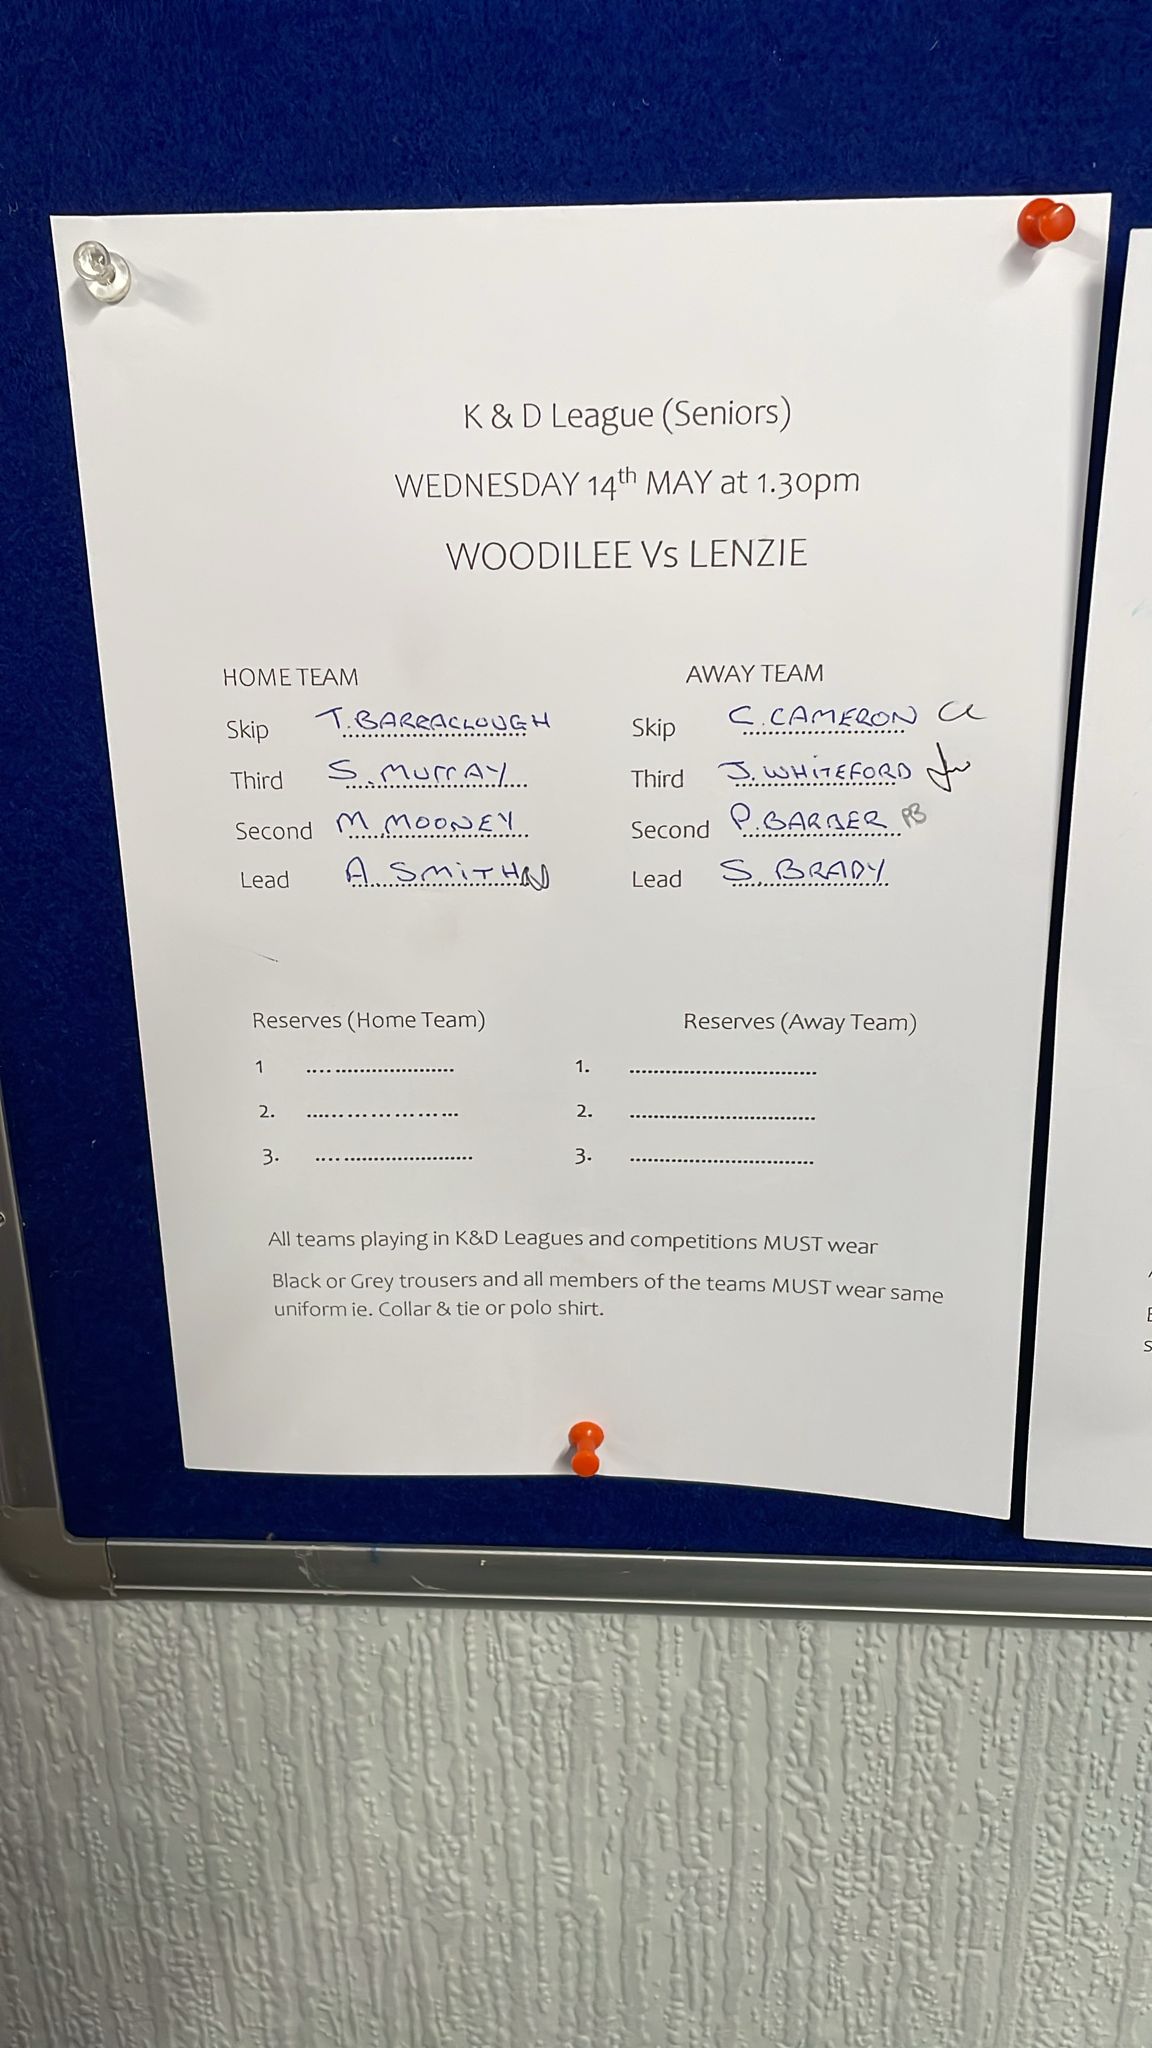 K & D League (Seniors)
WEDNESDAY 14th MAY at 1.30pm
WOODILEE Vs LENZIE
HOME TEAM AWAY TEAM
Skip T. BARRACLOUGH Skip C. CAMERON
Third S. MURRAY Third J. WHITEFORD
Second M MOONEY Second P. BARBER PB
Lead A SMITH Lead S BRADY
Reserves (Home Team) Reserves (Away Team)
1 1.
2. 2.
3. 3.
All teams playing in K&D Leagues and competitions MUST wear
Black or Grey trousers and all members of the teams MUST wear same
uniform ie. Collar & tie or polo shirt.